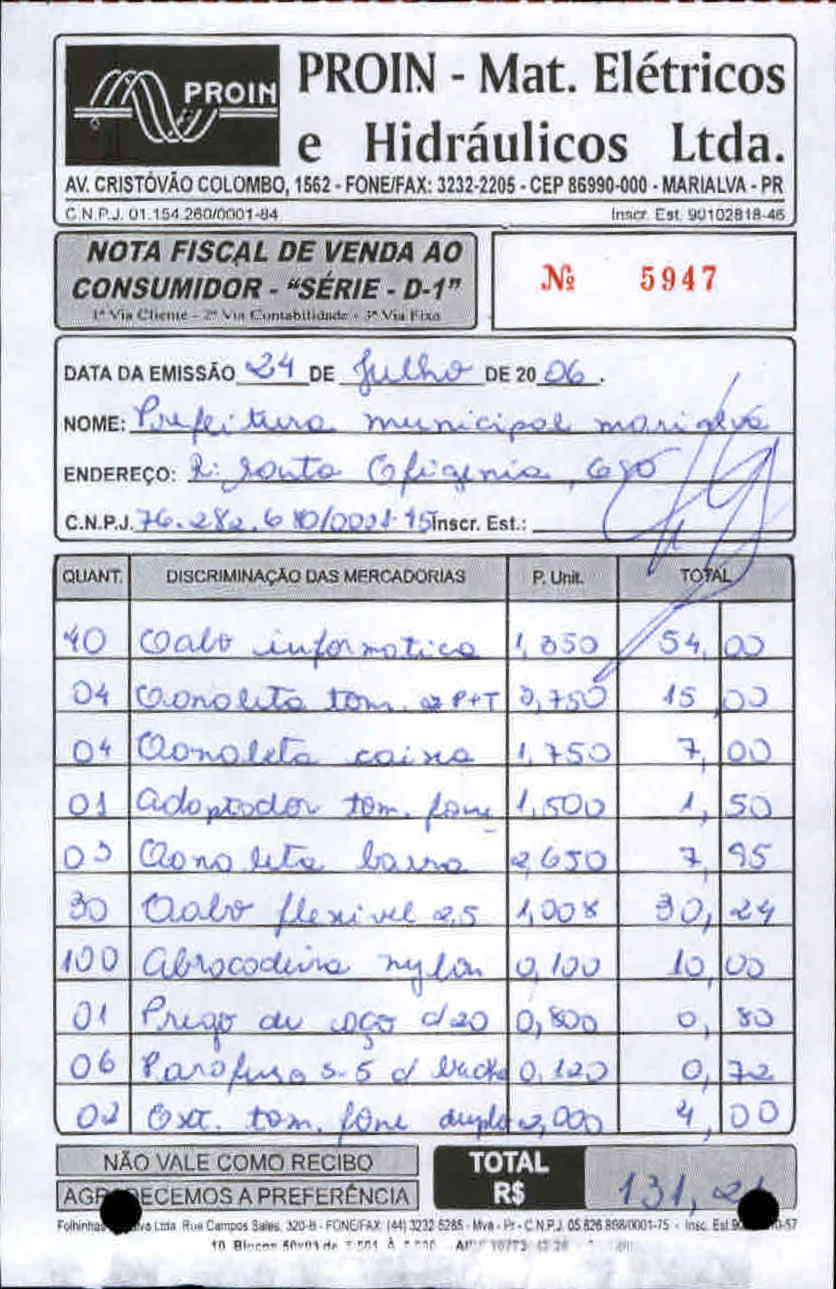 PROIN
PROIN - Mat. Elétricos
e Hidráulicos Ltda.
AV. CRISTÓVÃO COLOMBO, 1562 - FONE/FAX: 3232-2205 - CEP 86990-000 - MARIALVA - PR
C.N.P.J. 01.154.260/0001-84 Inscr. Est. 90102818-46
NOTA FISCAL DE VENDA AO
CONSUMIDOR - "SÉRIE - D-1"
1ª Via Cliente - 2ª Via Contabilidade - 3ª Via Fixa
Nº 5947
DATA DA EMISSÃO 24 DE Julho DE 20 06.
NOME: Prefeitura municipal marialva
ENDEREÇO: R: Santa Efigenia, 680
C.N.P.J. 76.282.680/0001-45 Inscr. Est.:
QUANT. DISCRIMINAÇÃO DAS MERCADORIAS P. Unit. TOTAL
40 Cabo informatica 1,350 54,00
04 Canaleta tom. 2P+T 3,750 15,00
04 Canaleta caixa 1,750 7,00
01 adaptador tom. fone 1,500 1,50
03 Canaleta barra 2,650 7,95
30 Cabo flexivel 2,5 1,008 30,24
100 abracadeira nylon 0,100 10,00
01 Prego de aço c/20 0,800 0,80
06 Parafuso S-5 c/ bucha 0,120 0,72
02 Ext. tom. fone duplo 2,000 4,00
NÃO VALE COMO RECIBO
AGRADECEMOS A PREFERÊNCIA
TOTAL R$ 131,21
Ltda. Rua Campos Sales, 320-B - FONE/FAX: (44) 3232-5285 - Mva - Pr - C.N.P.J. 05.826.898/0001-75 - Insc. Est.
10 Blocos 50x03 de